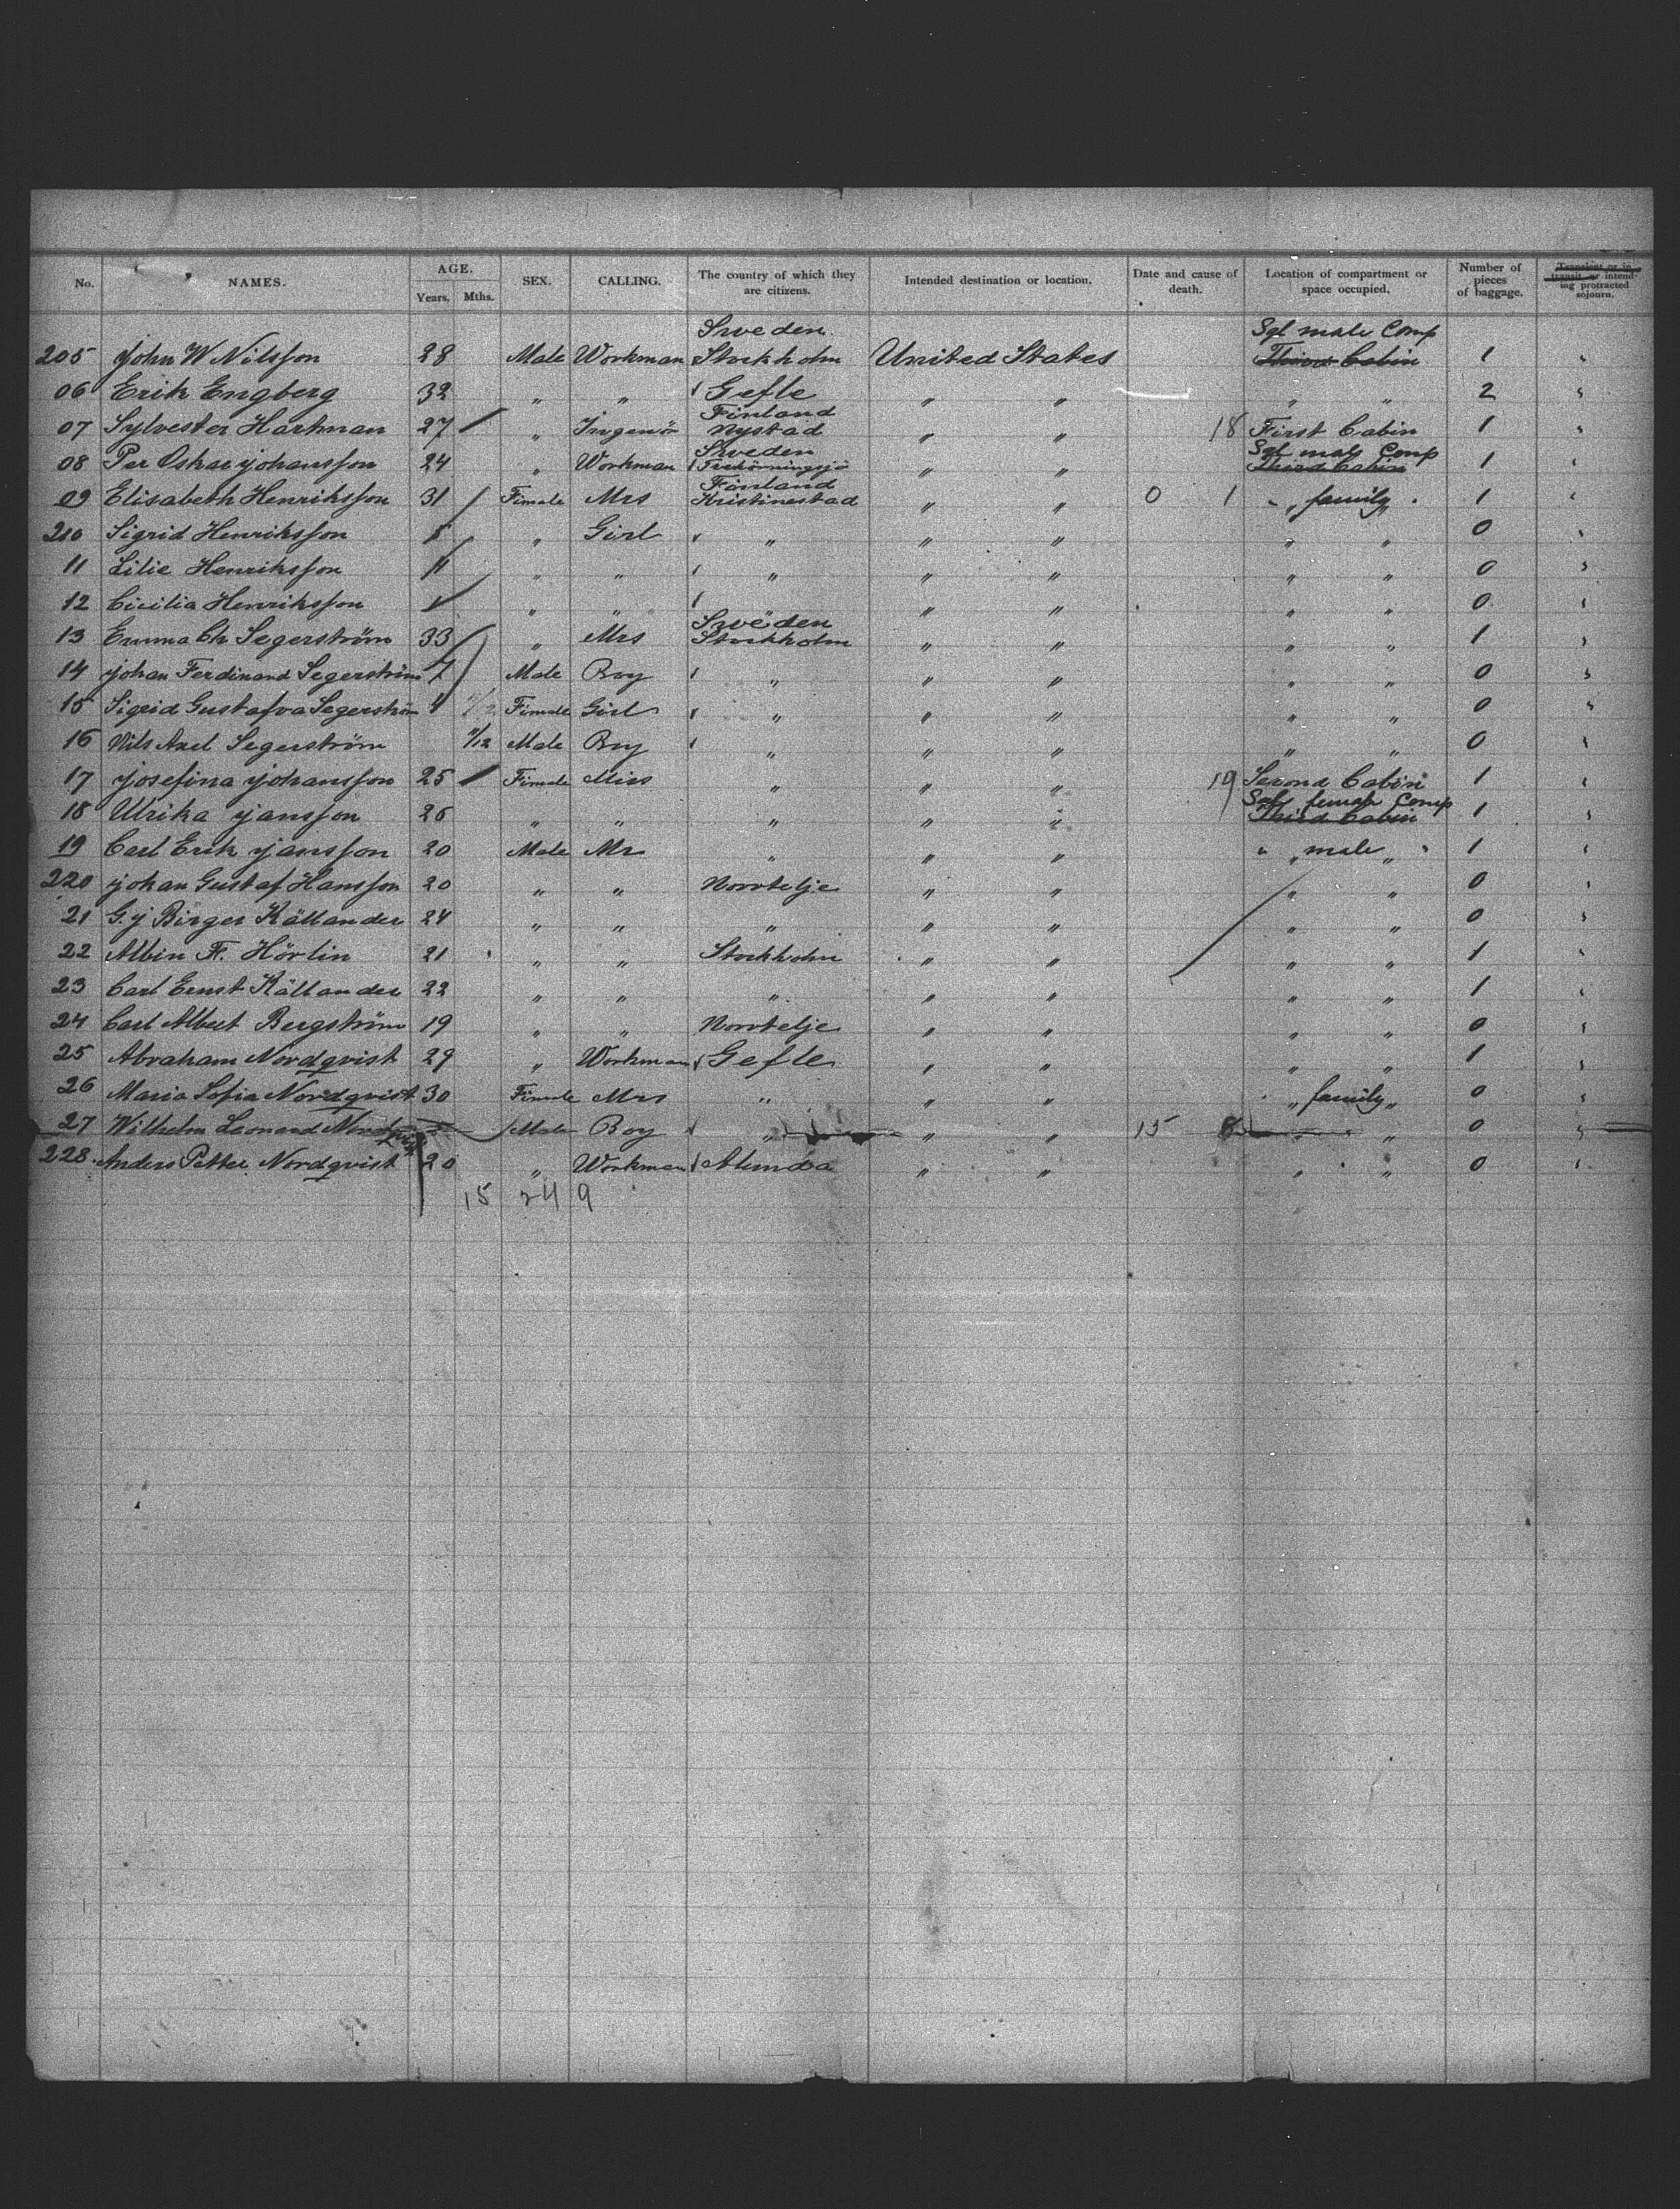 No. NAMES. AGE. Years. Mths. SEX. CALLING. The country of which they are citizens. Intended destination or location. Date and cause of death. Location of compartment or space occupied. Number of pieces of baggage. Transient or in transit or intending protracted sojourn.
Sweden Sgl male Comp
205 John W Nilsson 28 Male Workman Stockholm United States Third Cabin 1 "
06 Erik Engberg 32 " " Gefle " " " " 2 "
Finland
07 Sylvester Hartman 27 " Ingenör Nystad " " 18 First Cabin 1 "
Sweden Sgl male Comp
08 Per Oskar Johansson 24 " Workman " " Third Cabin 1 "
Finland
09 Elisabeth Henriksson 31 Fimale Mrs Kristinestad " " 0 1 " " family " 1 "
210 Sigrid Henriksson " Girl " " " " " 0 "
11 Lilie Henriksson " " " " " " " 0 "
12 Cicilia Henriksson " " " " " " 0 "
Sweden
13 Emma Ch Segerström 33 " Mrs Stockholm " " " " 1 "
14 Johan Ferdinand Segerström 7 Male Boy " " " " " 0 "
15 Sigrid Gustafva Segerström 4 Fimale Girl " " " " " 0 "
16 Nils Axel Segerström 11/12 Male Boy " " " " " 0 "
17 Josefina Johansson 25 Fimale Miss " " " 19 Second Cabin 1 "
Sgl female Comp
18 Ulrika Jansson 26 " " " " " Third Cabin 1 "
19 Carl Erik Jansson 20 Male Mr " " " " " male " " 1 "
220 Johan Gustaf Hansson 20 " " Norrtelje " " " " 0 "
21 G. J Birger Källander 24 " " " " " " " 0 "
22 Albin F. Hörlin 21 " " Stockholm " " " " 1 "
23 Carl Ernst Källander 22 " " " " " " " 1 "
24 Carl Albert Bergström 19 " " Norrtelje " " " " 0 "
25 Abraham Nordqvist 29 " Workman Gefle " " " " 1 "
26 Maria Sofia Nordqvist 30 Fimale Mrs " " " " family " 0 "
27 Wilhelm Leonard Nordqvist Male Boy " " " 15 8 " " 0 "
228 Anders Petter Nordqvist 20 " Workman Alunda " " " " 0 "
15 24 9